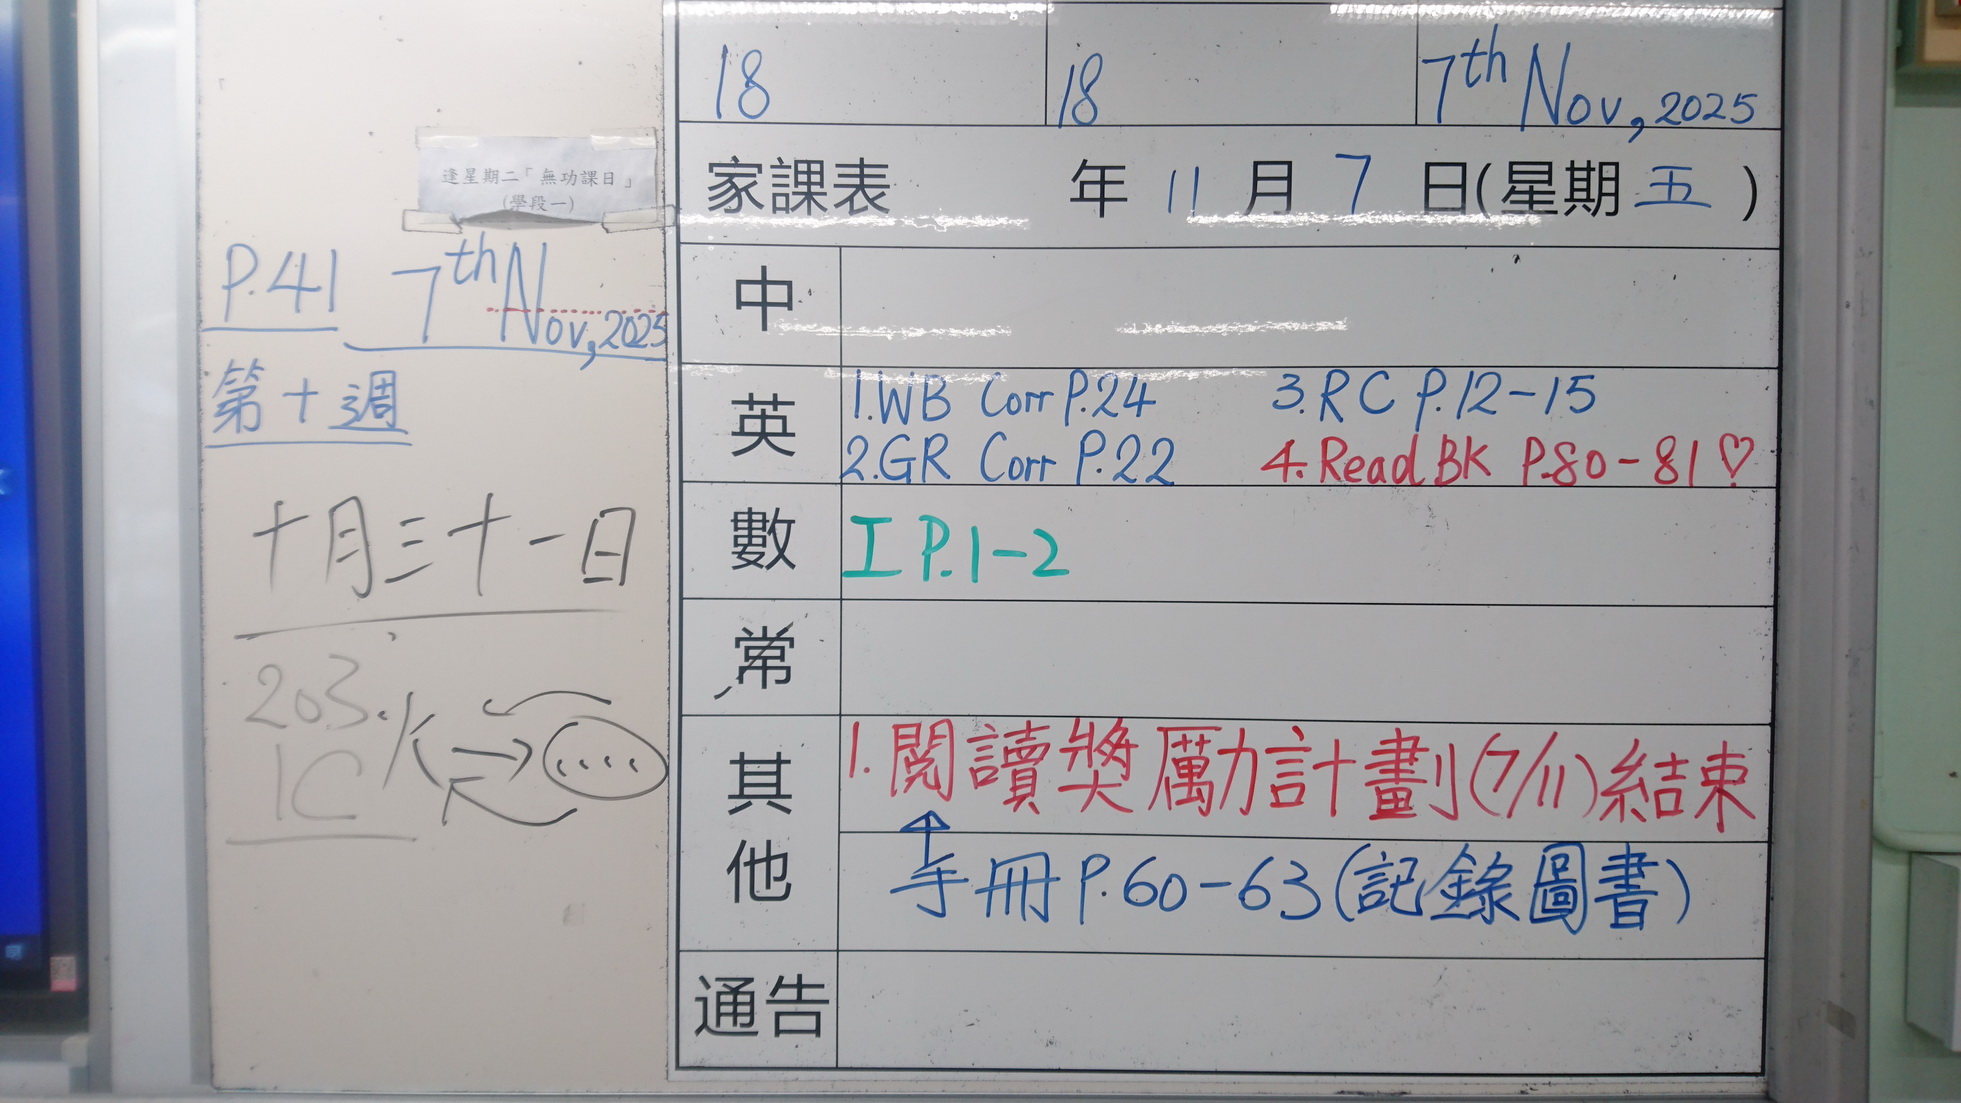 18 18 7th Nov, 2025
家課表 年 11 月 7 日(星期 五 )
中
英 1.WB Corr P.24 3.RC P.12-15
2.GR Corr P.22 4.Read BK P.80-81♡
數 I P.1-2
常
其他 1.閱讀獎勵計劃(7/11)結束
手冊 P.60-63(記錄圖書)
通告
逢星期二「無功課日」
(學段一)
P.41 7th Nov, 2025
第十週
十月三十一日
203.
1C